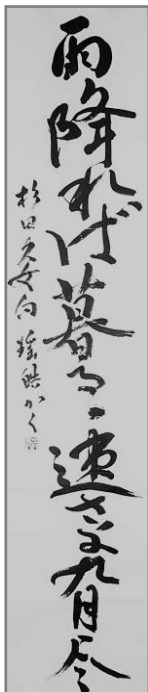 雨降れば暮るゝ速さよ九月尽
杉田久女句 瑤皓かく